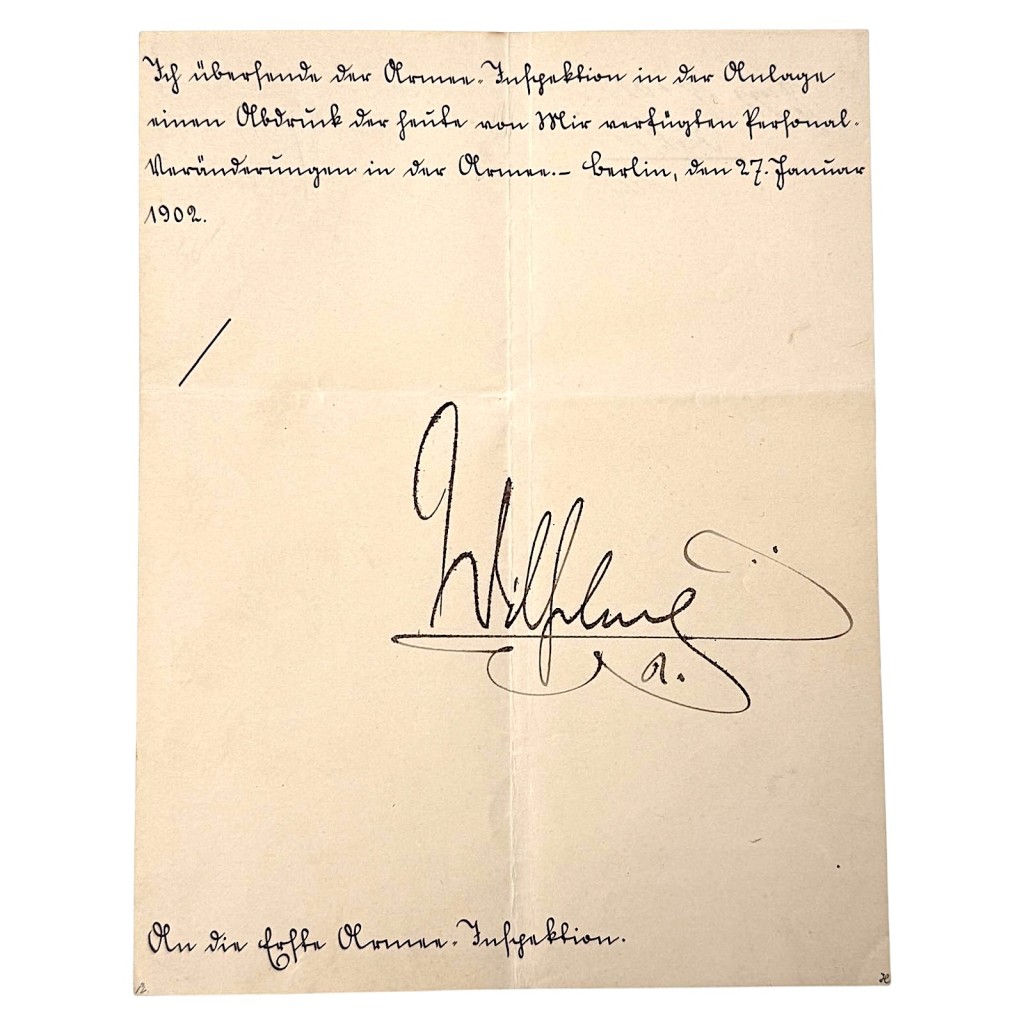 Ich übersende der Armee-Inspektion in der Anlage
einen Abdruck der heute von Mir verfügten Personal-
Veränderungen in der Armee.– Berlin, den 27. Januar
1902.
Wilhelm
R.
An die Erste Armee-Inspektion.